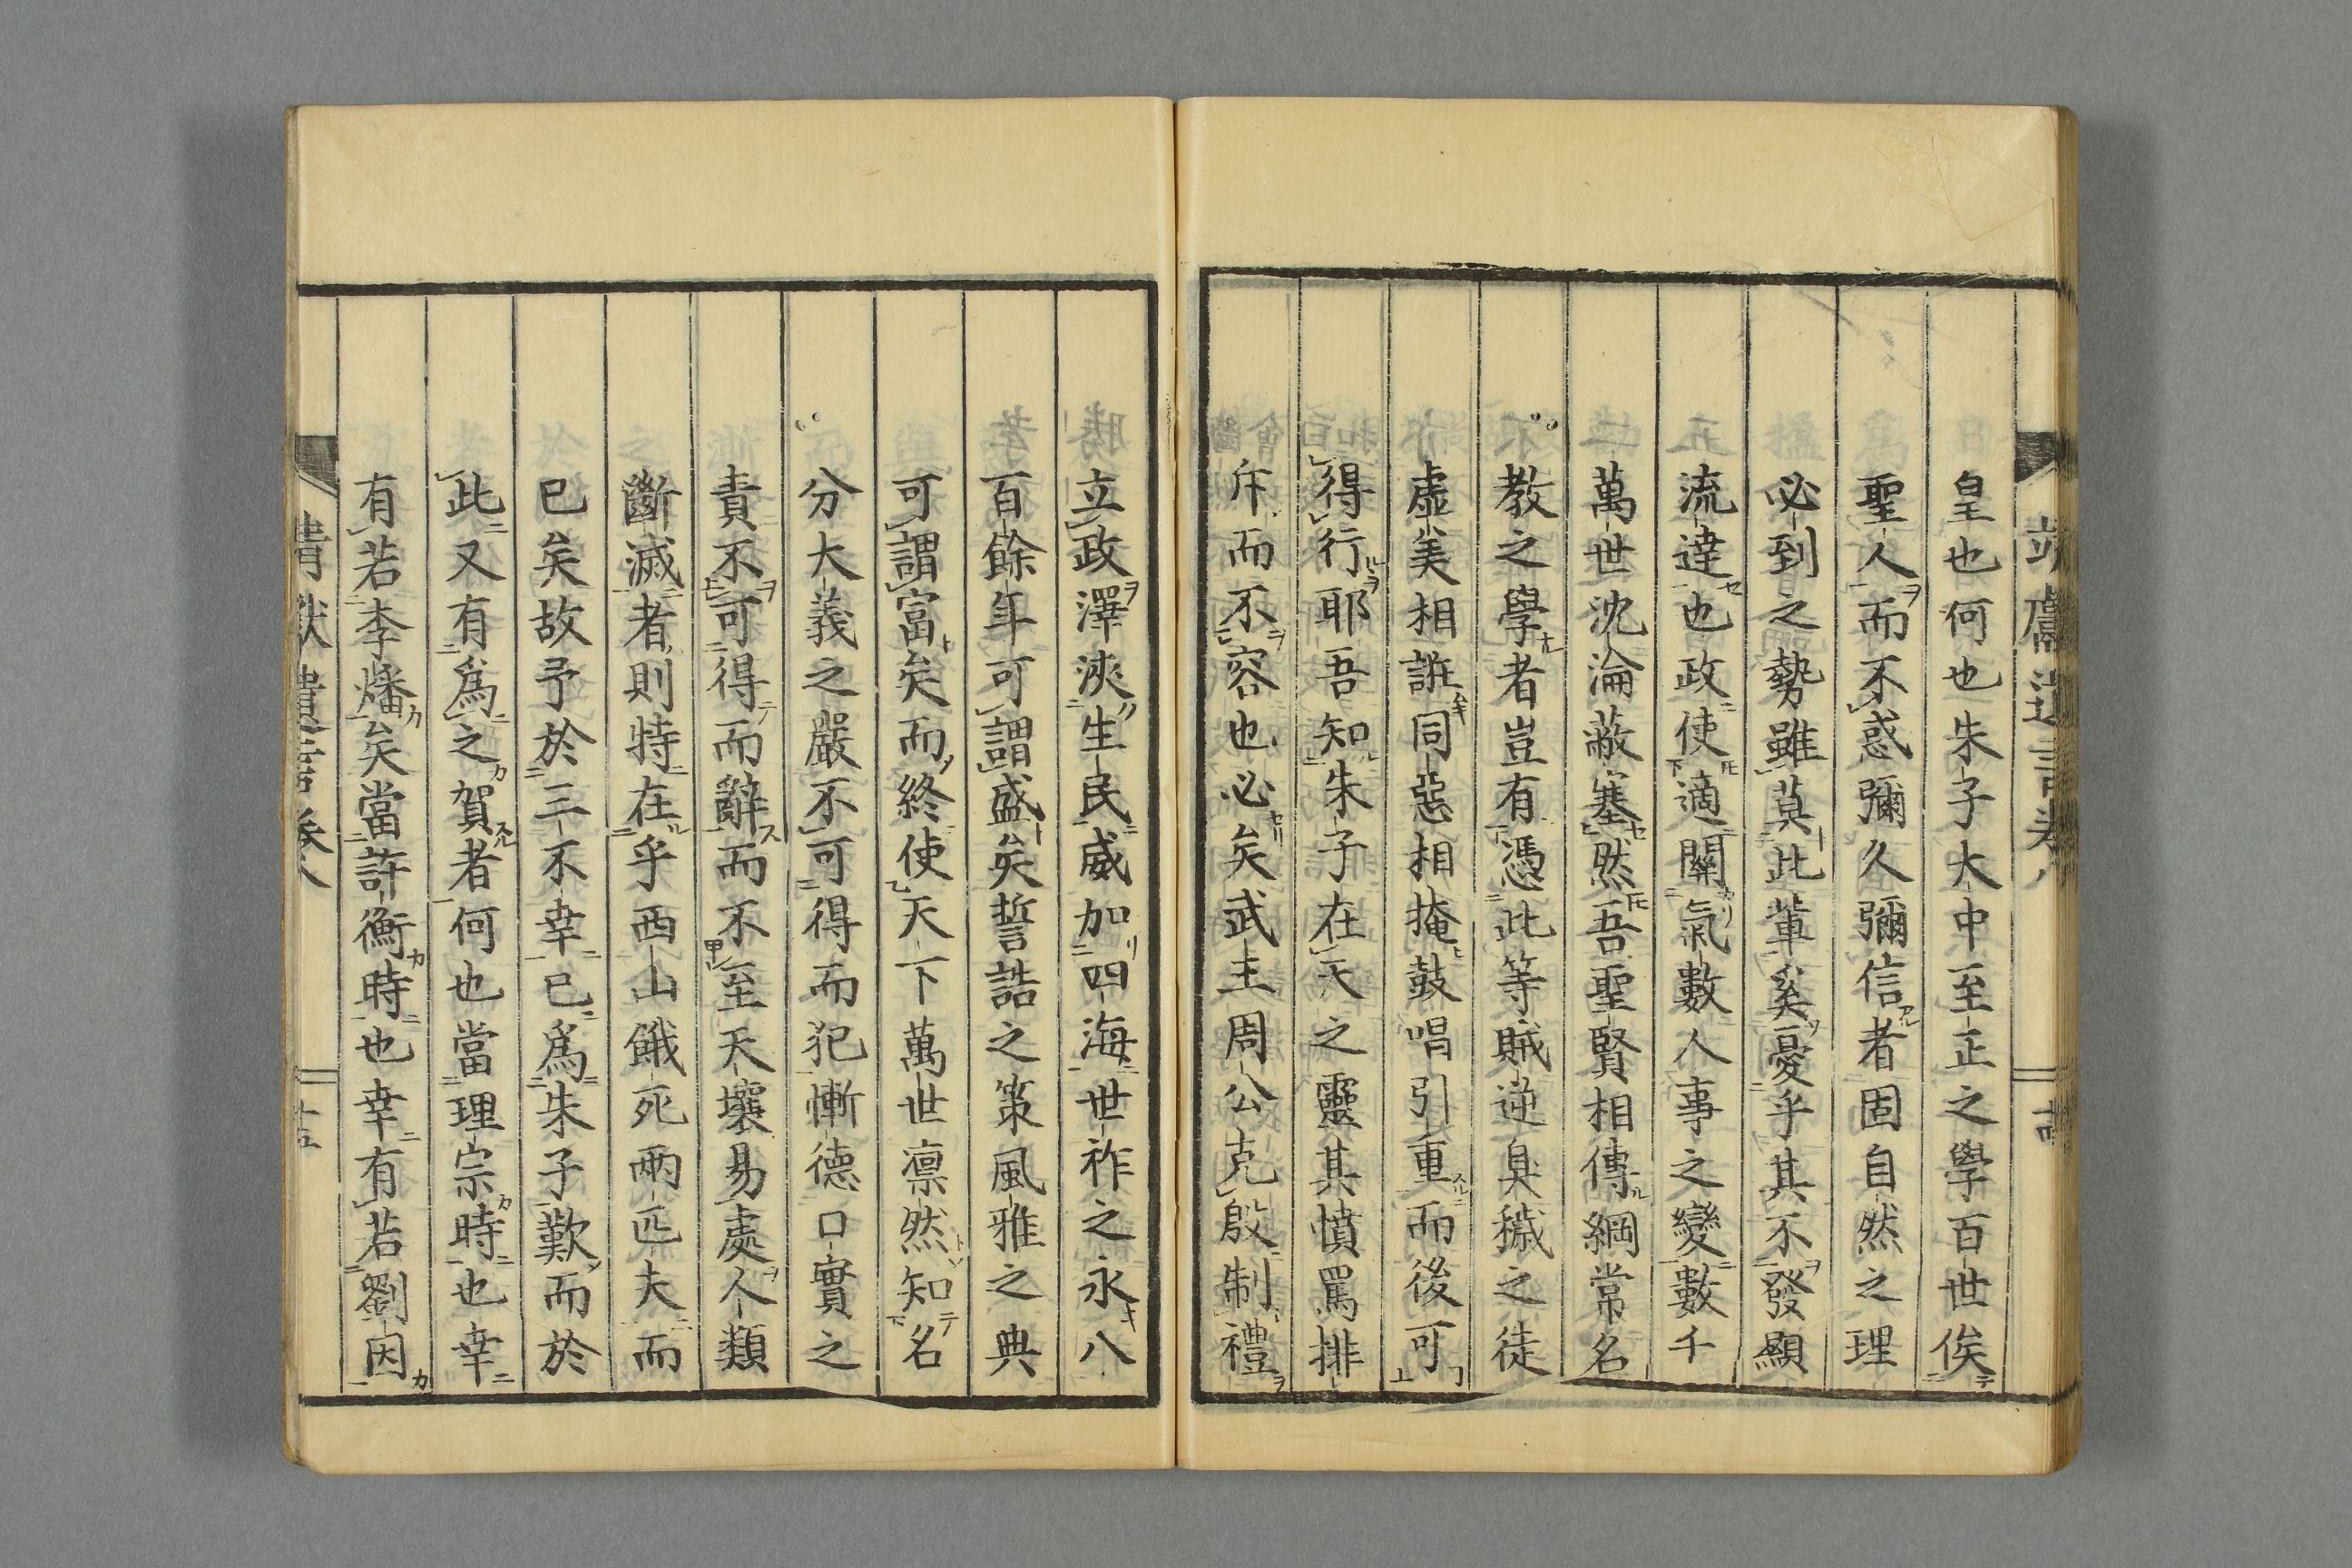 靖獻遺言卷八
皇也何也朱子大中至正之學百世俟
聖人而不惑彌久彌信者固自然之理
必到之勢雖莫此輩奚憂乎其不發顯
流達也政使適關氣數人事之變數千
萬世沈淪蔽塞然吾聖賢相傳綱常名
教之學者豈有憑此等賊逆臭穢之徒
虛美相誑同惡相掩鼓唱引重而後可
得行耶吾知朱子在天之靈其憤罵排
斥而不容也必矣武王周公克殷制禮
立政澤浹生民威加四海世祚之永八
百餘年可謂盛矣誓誥之策風雅之典
可謂富矣而終使天下萬世凛然知名
分大義之嚴不可得而犯慚德口實之
責不可得而辭而不至天壤易處人類
斷滅者則特在乎西山餓死兩匹夫而
已矣故予於三不幸已爲朱子歎而於
此又有爲之賀者何也當理宗時也幸
有若李燔矣當許衡時也幸有若劉因
靖獻遺言卷八